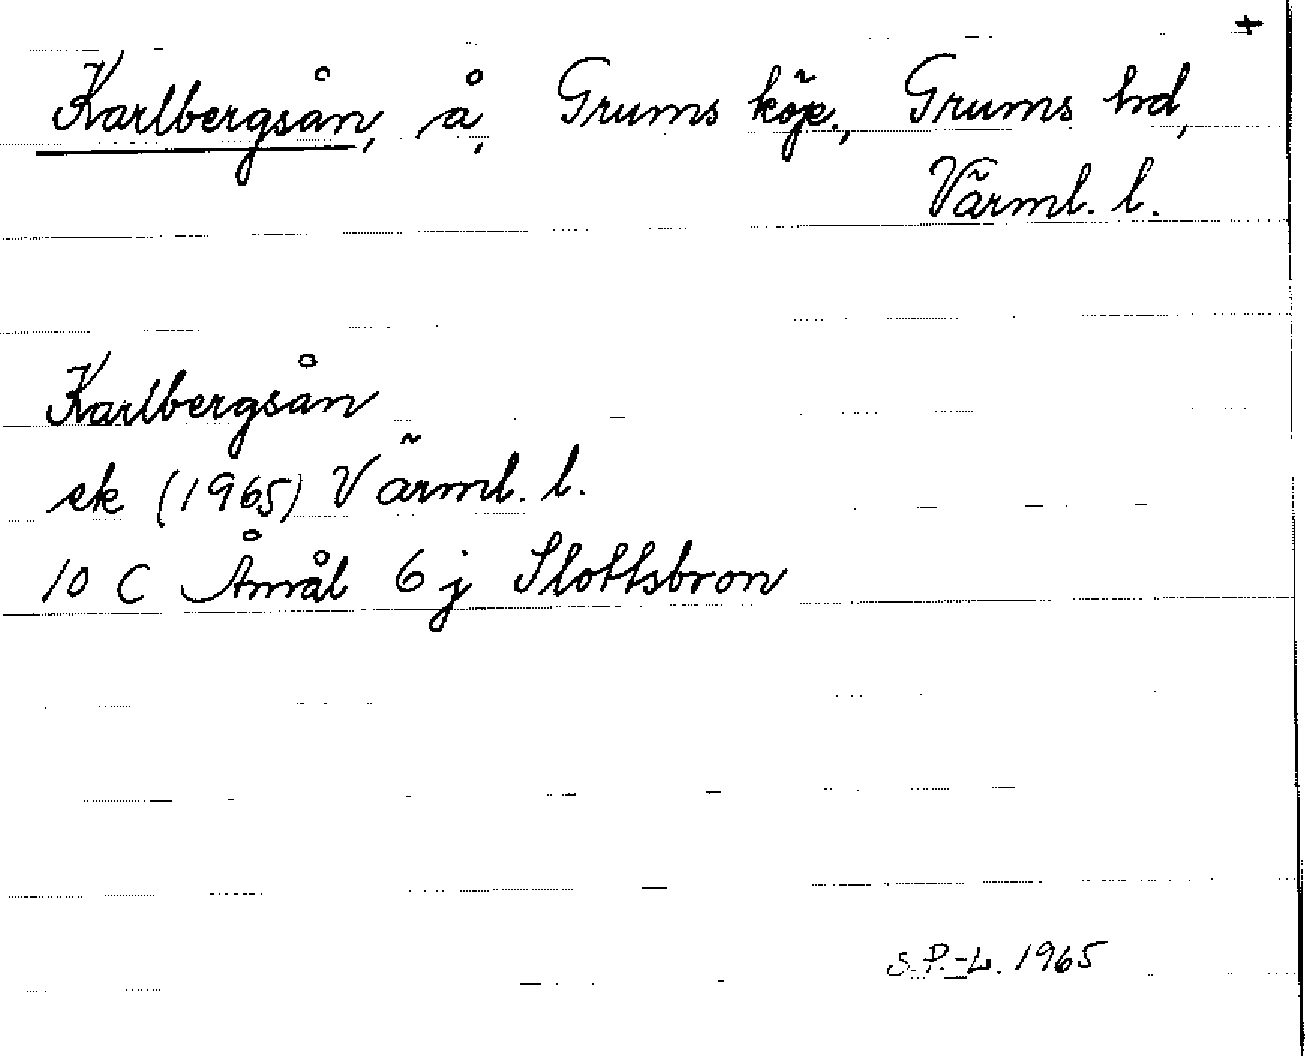 +
Karlbergsån, å, Grums köp., Grums hd,
Värml. l.
Karlbergsån
ek (1965) Värml. l.
10 C Åmål 6 j Slottsbron
S.P.-L. 1965